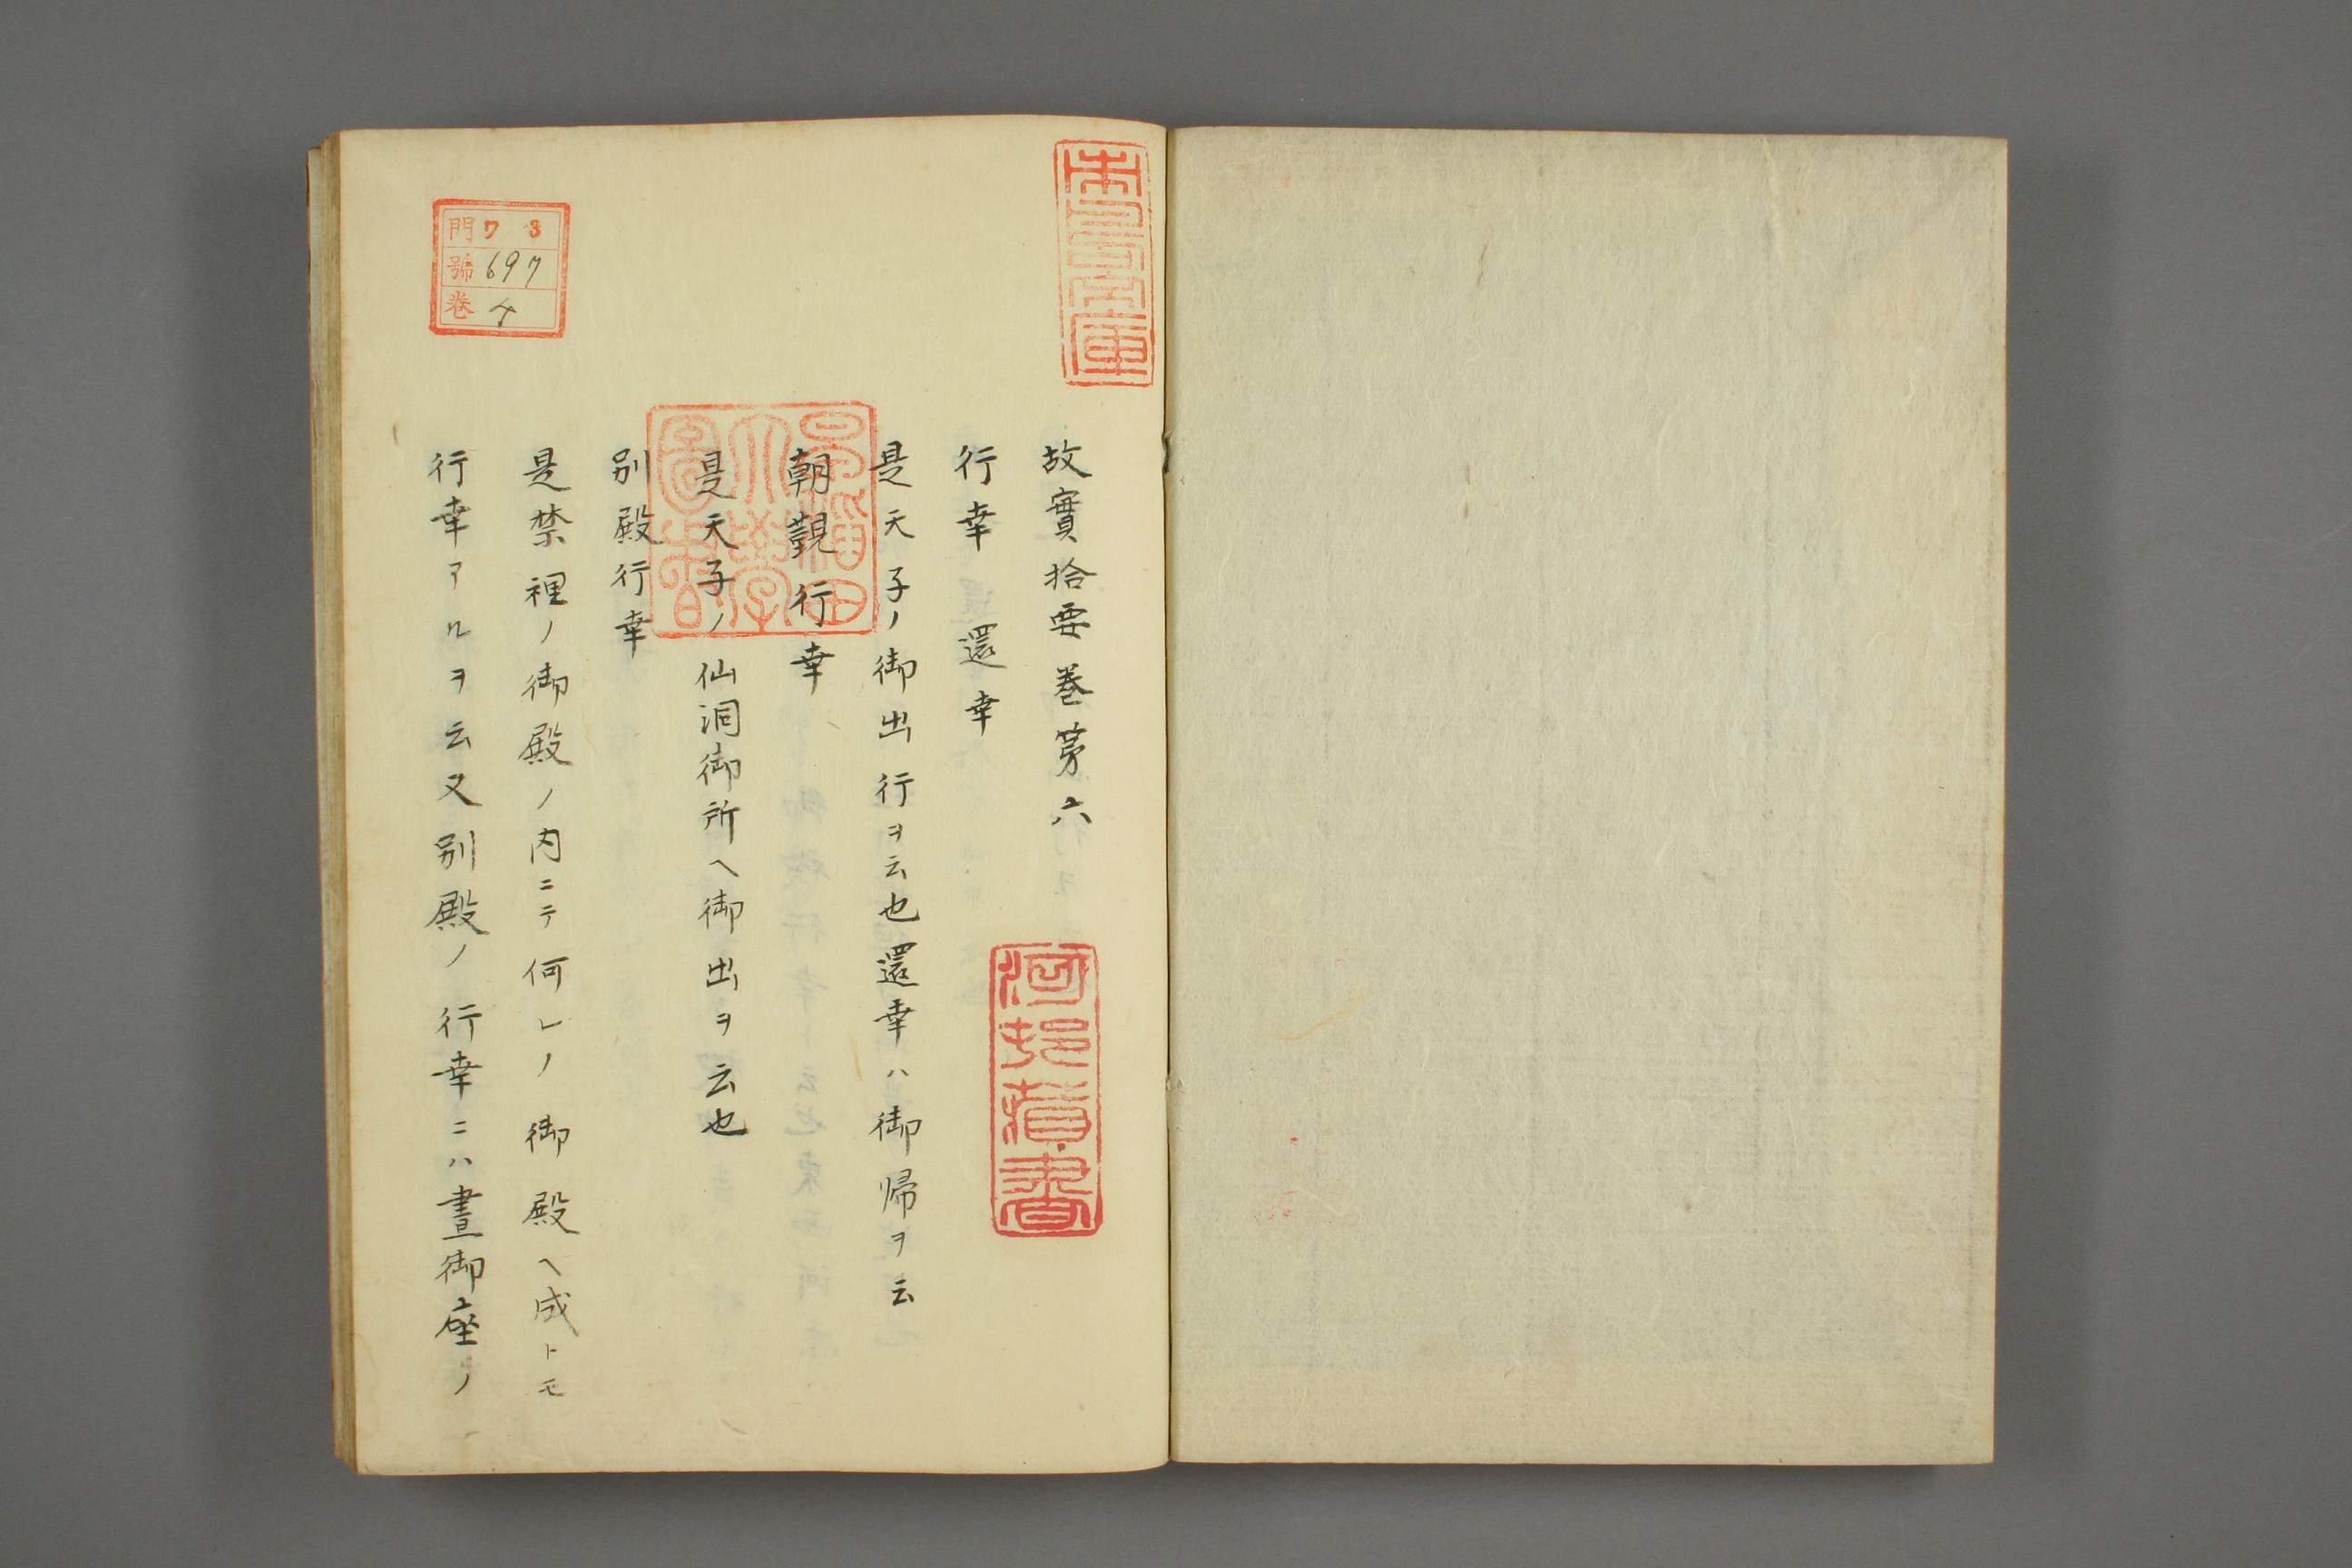 故實拾要卷第六
行幸 還幸
是天子ノ御出行ヲ云也還幸ハ御帰ヲ云
朝覲行幸
是天子ノ仙洞御所ヘ御出ヲ云也
別殿行幸
是禁裡ノ御殿ノ内ニテ何レノ御殿ヘ成トモ
行幸アルヲ云又別殿ノ行幸ニハ晝御座ノ
早稲田大學圖書
門 73
號 697
卷